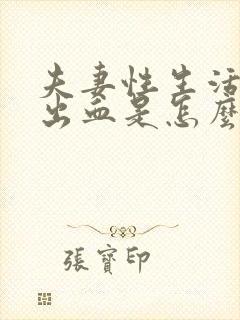 夫妻性生活
出血是怎麼
張寶印